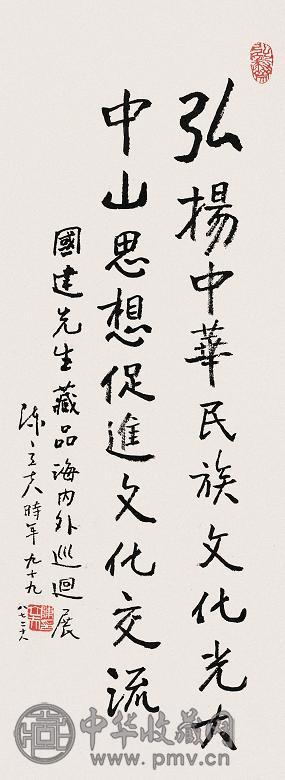 弘揚中華民族文化光大
中山思想促進文化交流
國建先生藏品海內外巡迴展
陳立夫時年九十九
中华收藏网
www.pmv.cn